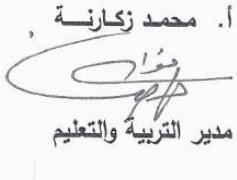 أ. محمد زكارنـــة
مدير التربية والتعليم